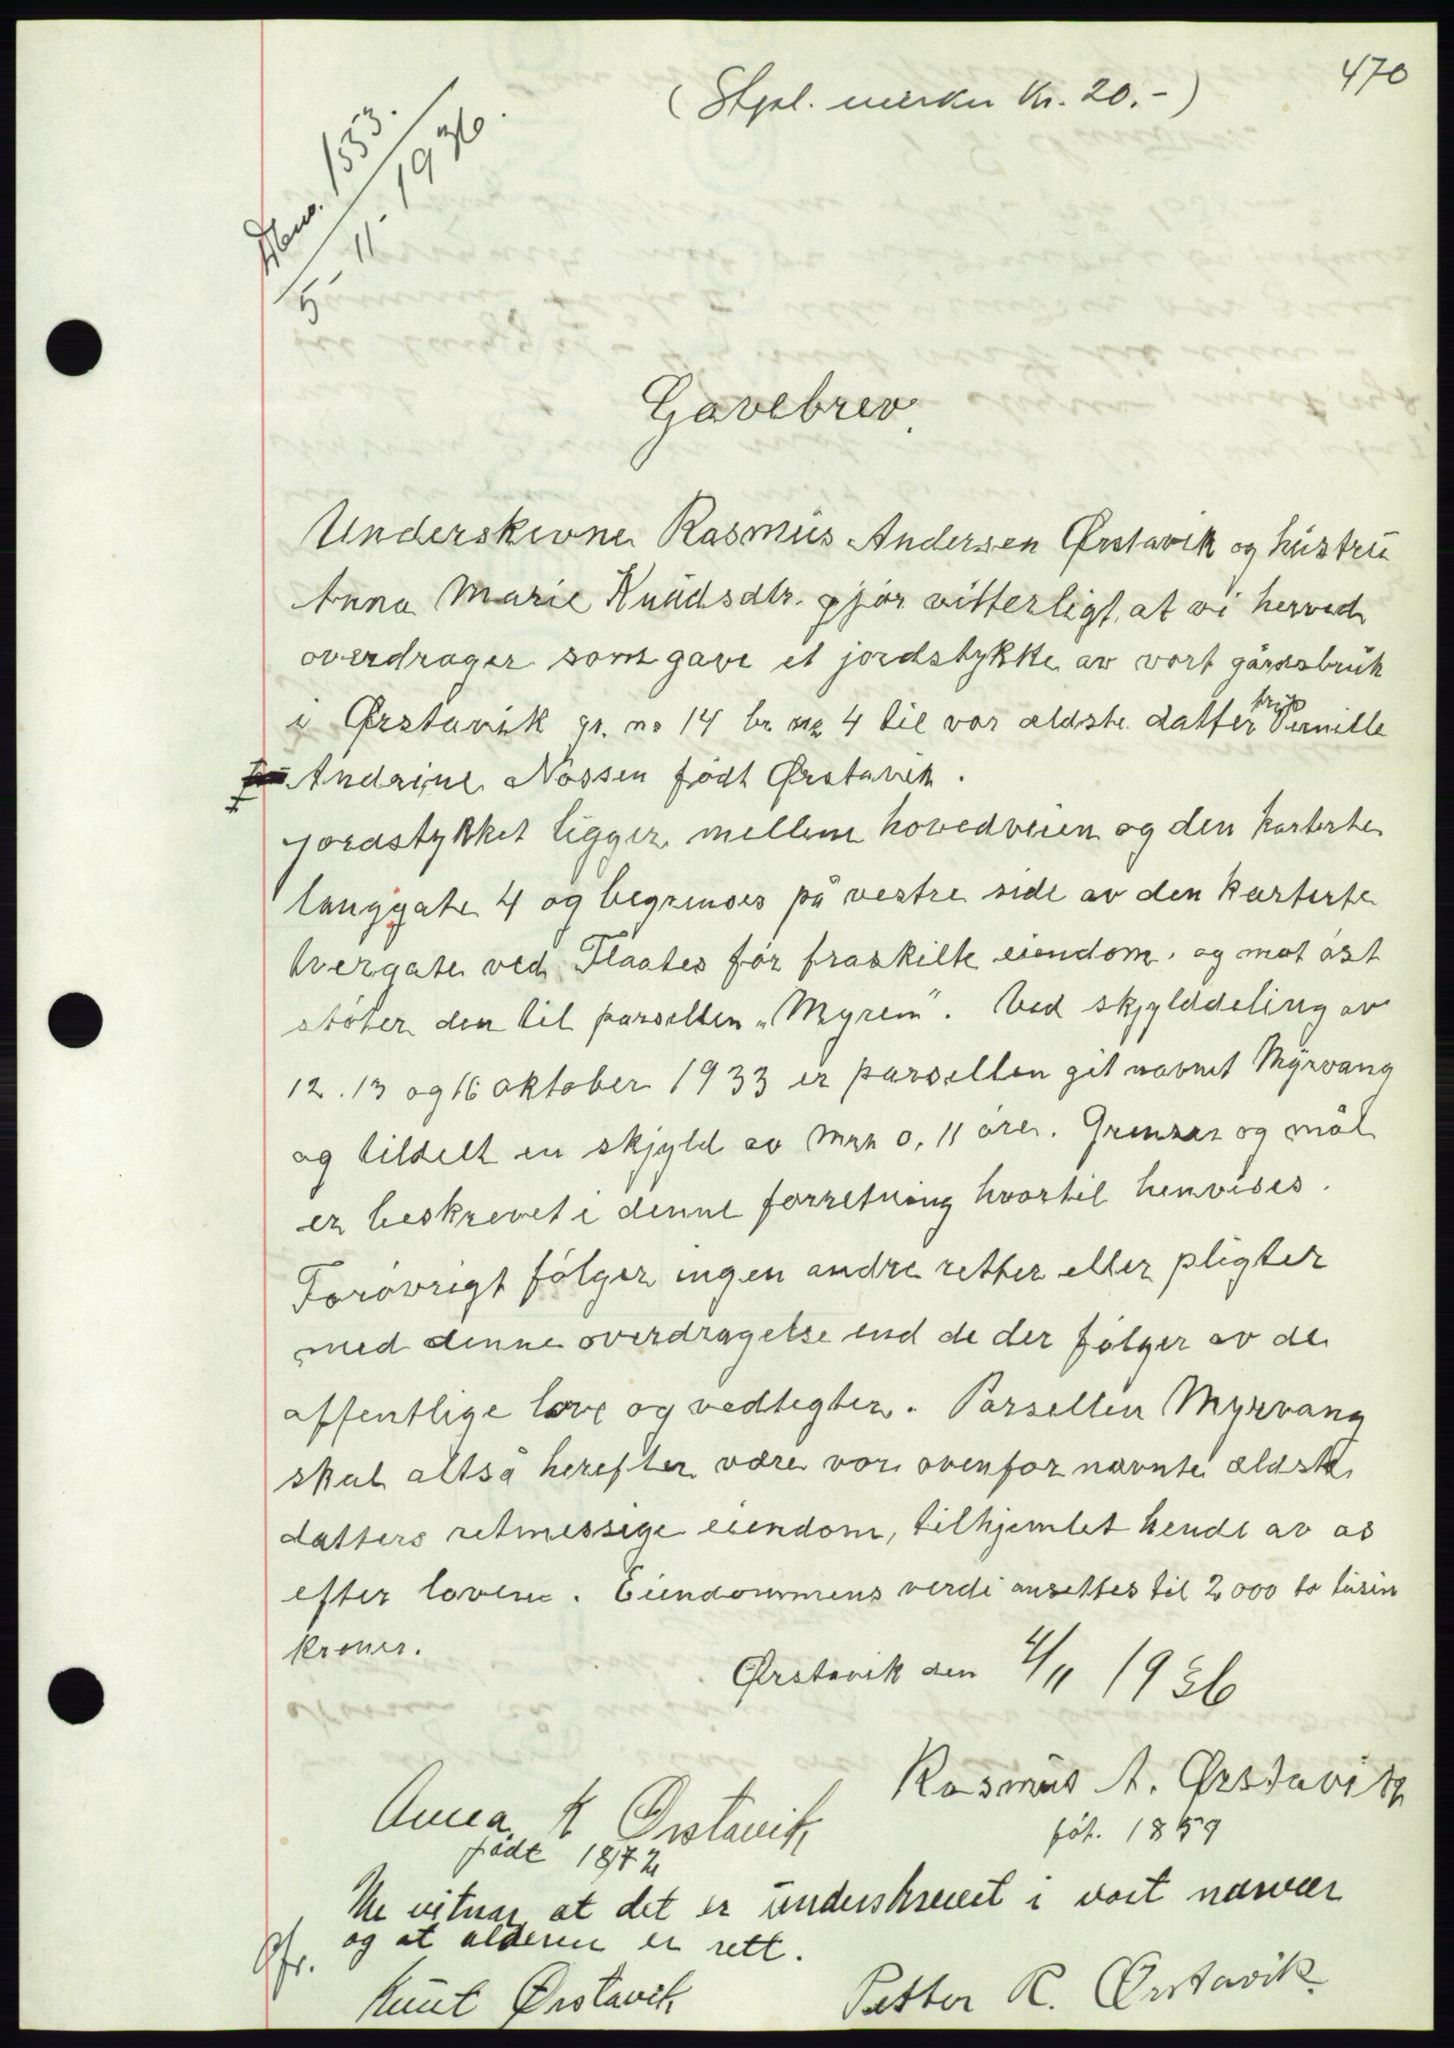 470
(Stpl. merker Kr. 20.-)
Dbno. 1553.
5-11-1936.
Gavebrev.
Underskevne Rasmus Andersen Ørstavik og hustru
Anna Marie Knudsdtr. gjør vitterligt, at vi herved
overdrager som gave et jordstykke av vort gårdsbruk
i Ørstavik gr. no 14 br. no 4 til vor ældste datter fru Pernille
Andrine Nossen født Ørstavik.
Jordstykket ligger mellem hovedveien og den karterte
langgate 4 og begrenses på vestre side av den karterte
tvergate ved Flaates før fraskilte eiendom, og mot øst
støter den til parsellen „Myren". Ved skjylddeling av
12. 13 og 16 oktober 1933 er parsellen git navnet Myrvang
og tildelt en skjyld av Mrk 0,11 øre. Grenser og mål
er beskrevet i denne forretning hvortil henvises.
Forøvrigt følger ingen andre retter eller pligter
med denne overdragelse end de der følger av de
offentlige love og vedtegter. Parsellen Myrvang
skal altså herefter være vor ovenfor nævnte ældste
datters retmessige eiendom, tilhjemlet hende av os
efter lovene. Eiendommens verdi ansettes til 2000 to tusin
kroner.
Ørstavik den 4/11 1936
Rasmus A. Ørstavik
føt. 1859
Anna K Ørstavik
født 1872
Me vitnar at det er underskrevet i vort nærvær
og at alderen er rett.
Gfr.
Knut Ørstavik
Petter R. Ørstavik.